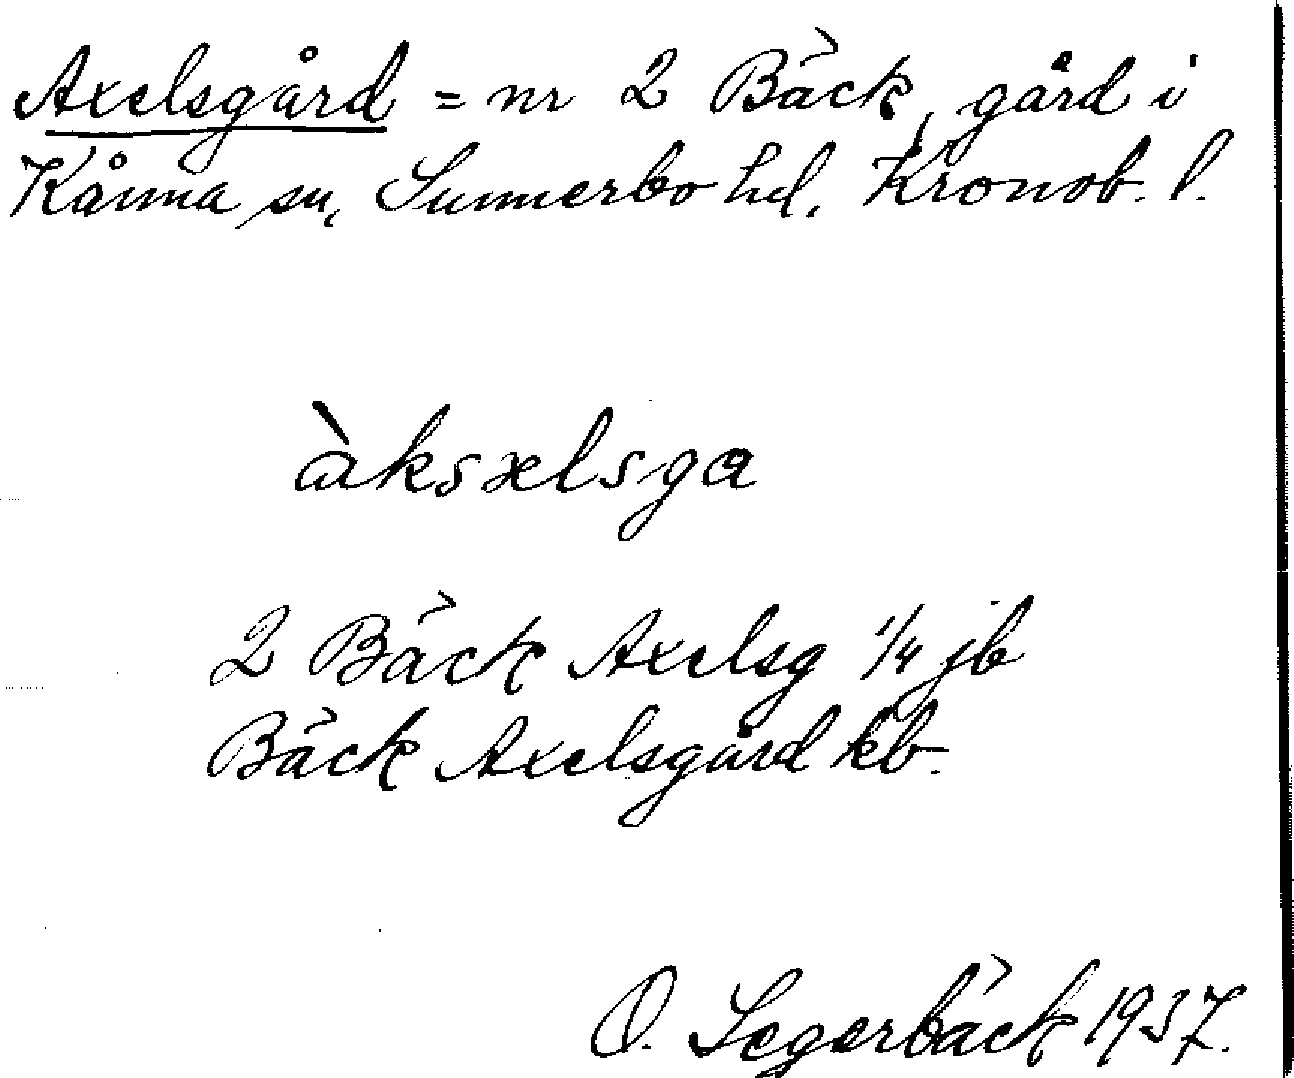 Axelsgård = nr 2 Bäck, gård i
Kånna sn, Sunnerbo hd, Kronob. l.
àksælsga
2 Bäck Axelsg 1/4 jb
Bäck Axelsgård kb.
O. Segerbäck 1937.